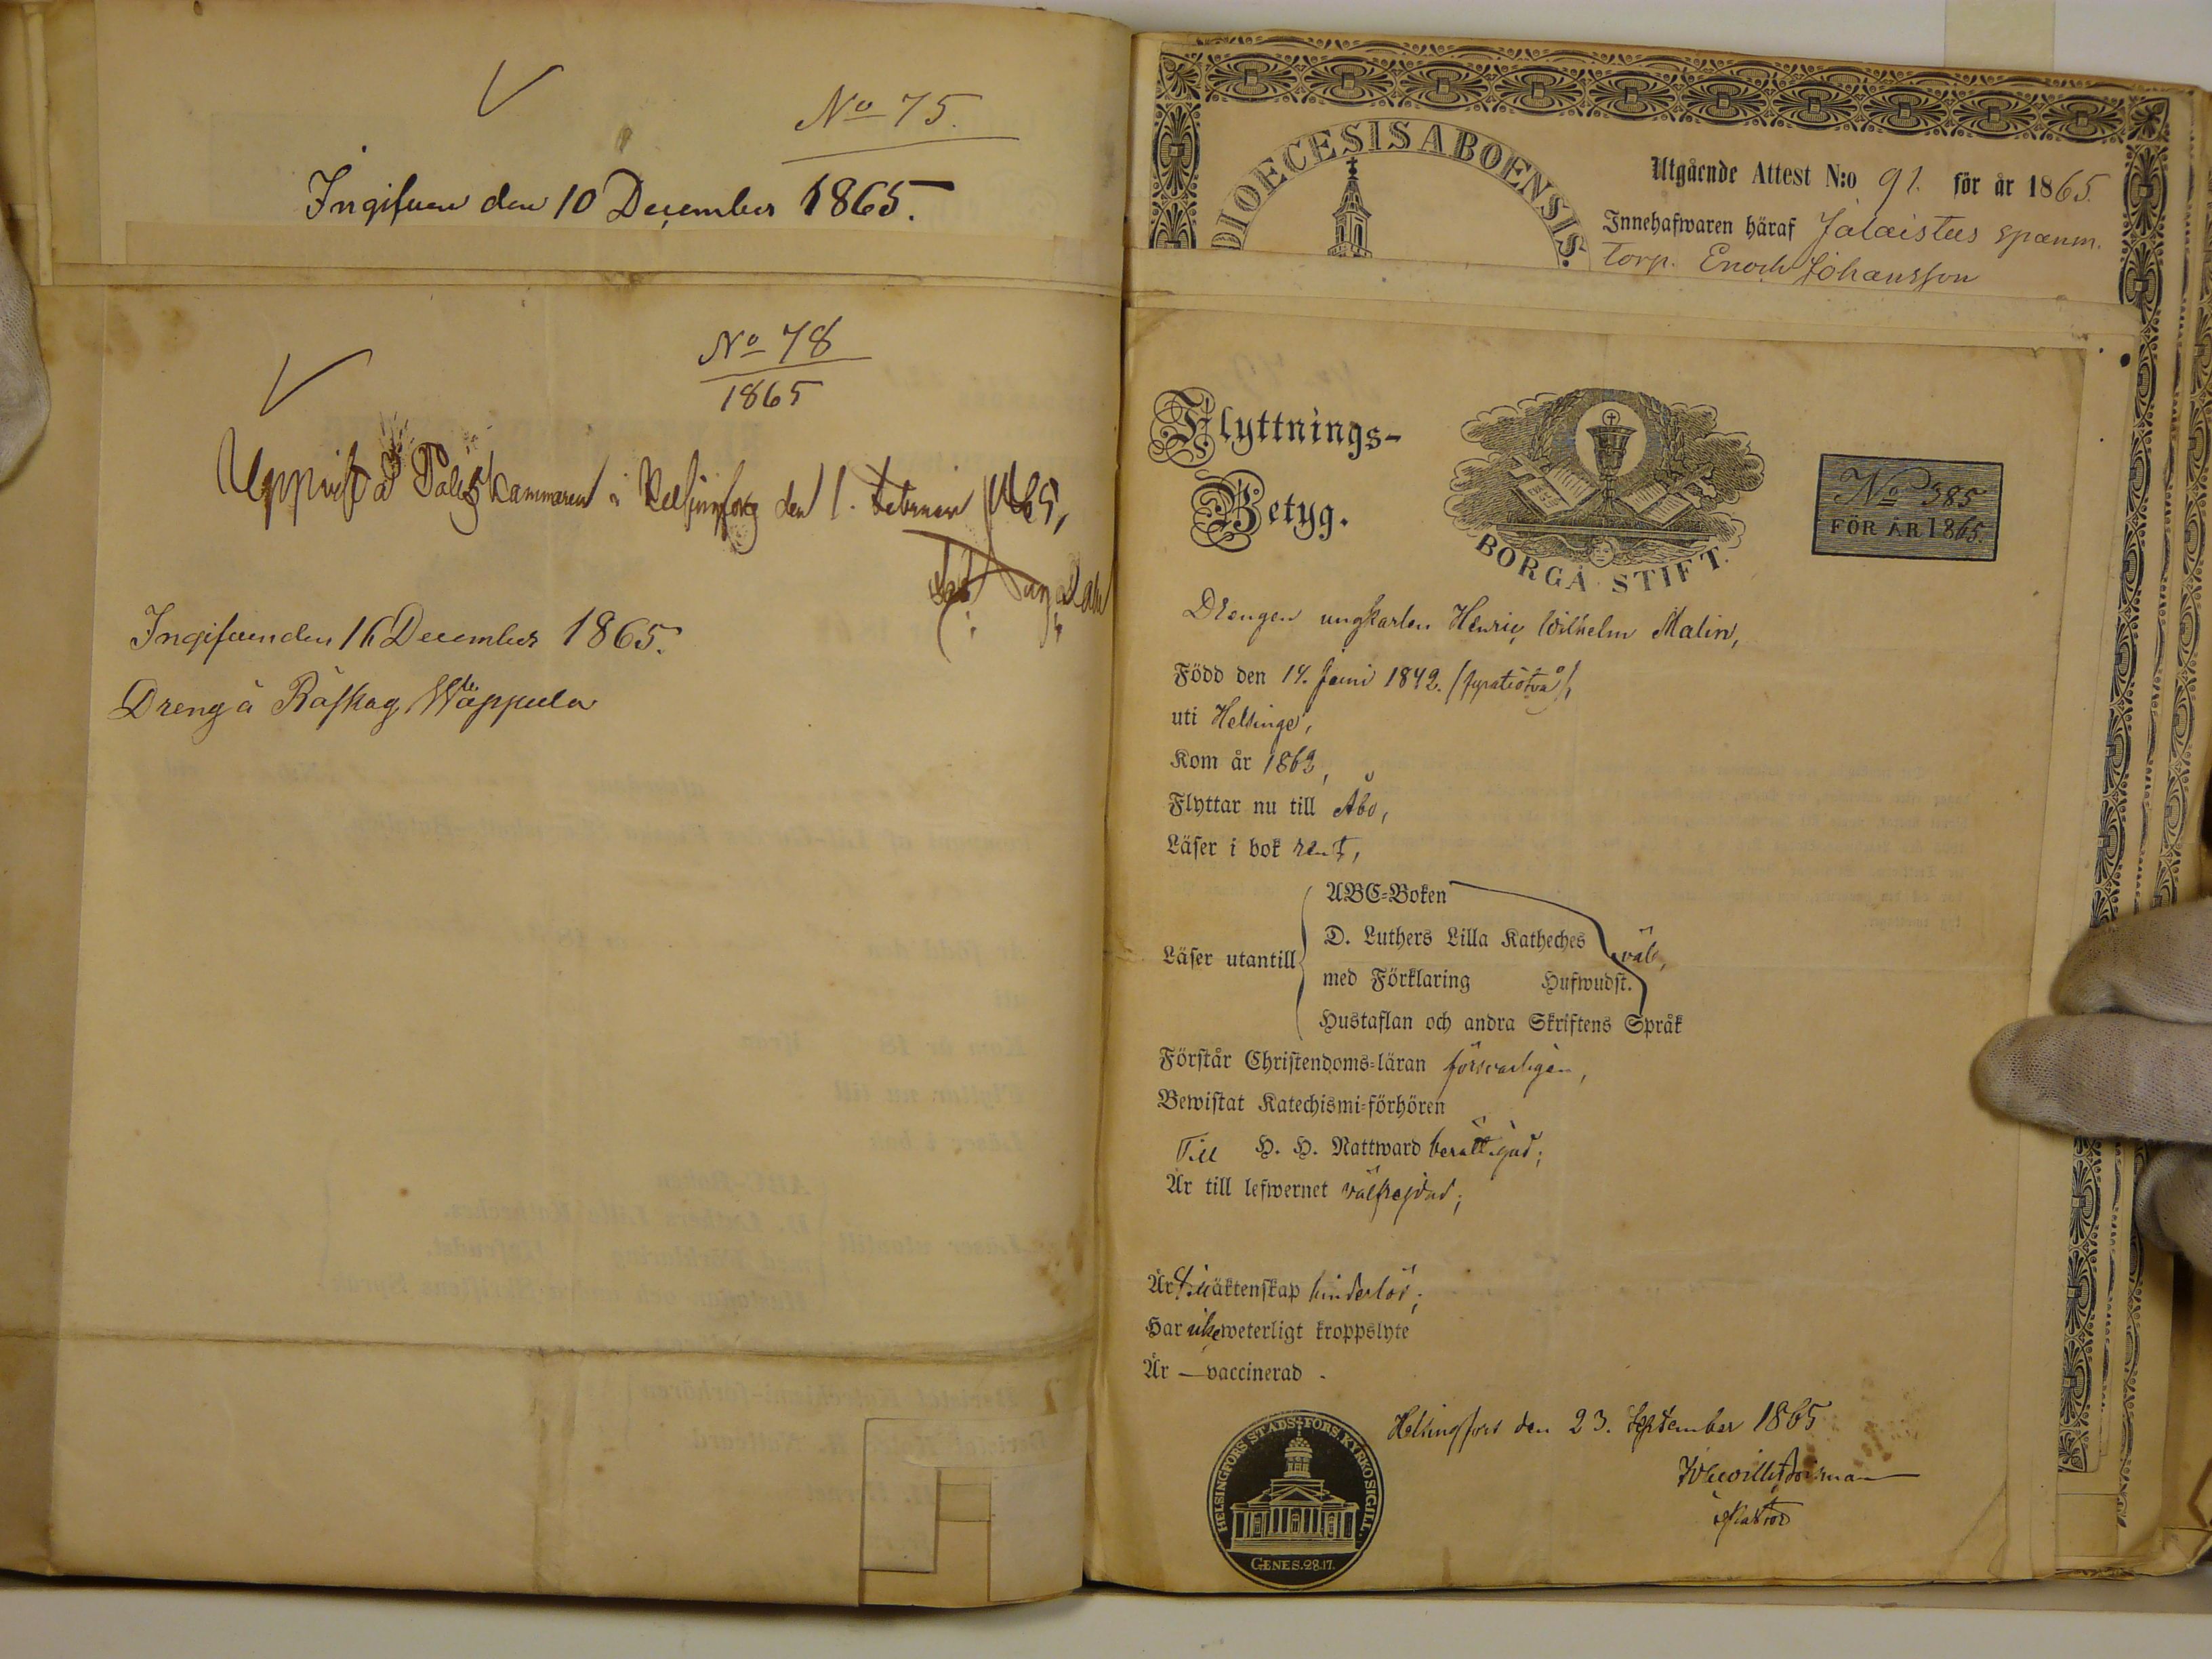 No 75.
Ingifven den 10 December 1865.
No 78
1865
Uppvist å Poliskammaren i Helsingfors den 1.
Ingifven den 16 December 1865.
Dreng å Räfskag
DIOECESIS ABOENSIS.
Utgående Attest N:o 91. för år 1865.
Innehafwaren häraf Jalaistus spanm.
torp. Enoch Johansson
Flyttnings-
Betyg.
BORGÅ STIFT.
No 385
FÖR ÅR 1865.
Drengen ungkarlen Henric Wilhelm Malin,
Född den 14. Juni 1842. (fyratiotvå),
uti Helsinge,
Kom år 1862,
Flyttar nu till Åbo,
Läser i bok rent,
ABC-Boken
D. Luthers Lilla Katheches
Läser utantill väl,
med Förklaring Hufwudst.
Hustaflan och andra Skriftens Språk
Förstår Christendoms-läran försvarligen,
Bewistat Katechismi-förhören
Till H. H. Nattward berättigad;
Är till lefwernet välfrejdad;
Är till äktenskap hinderlös;
Har icke weterligt kroppslyte
Är — vaccinerad.
Helsingfors den 23. September 1865
Pastor
HELSINGFORS STADS-FÖRS. KYRKOSIGILL.
GENES. 28.17.